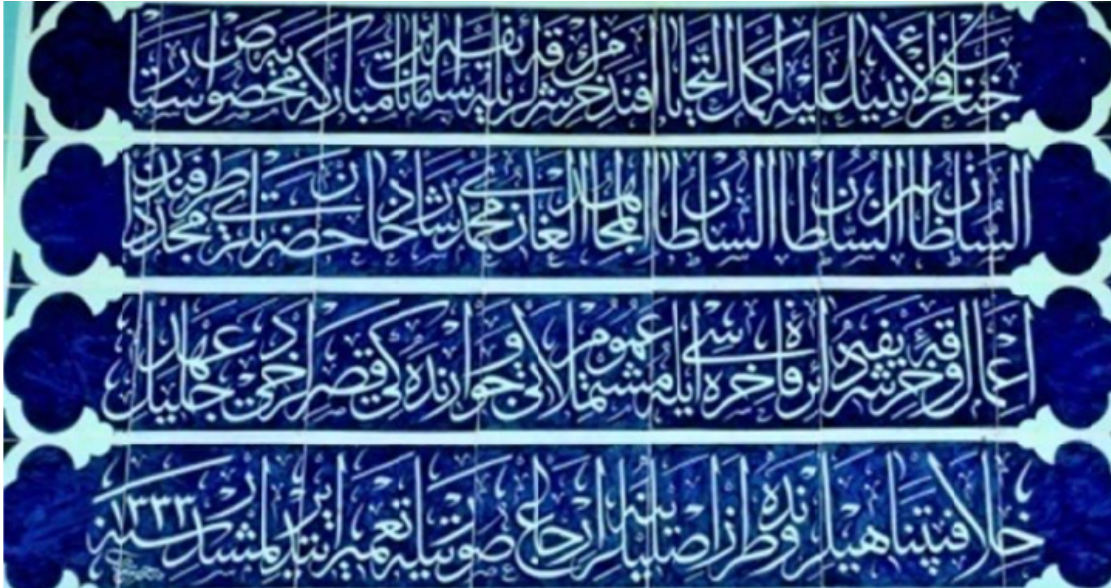 جناب فخر الأنبيا عليه اكمل التحايا افندمزك خرقهٔ شريفه لريله سائر امانات مباركه يه مخصوص
السلطان ابن السلطان السلطان المجاهد الغازي محمد رشاد خان حضرتلري طرفندن مجددا
اعمال و خرقهٔ شريفه دائرهٔ فاخره سي ايله عموم مشتملاتي و جوارنده كي قصرلر دخي عهد جليل
خلافتپناهيلرنده و طراز اصليلرينه ارجاع صورتيله تعمير ايتديرلمشدر سنه ١٣٣٣